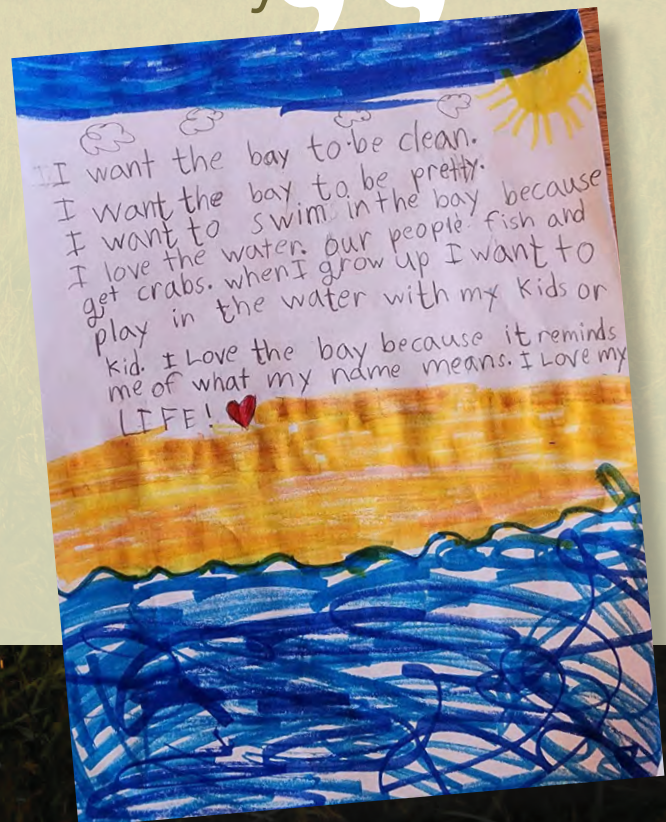 I want the bay to be clean.
I want the bay to be pretty.
I want to swim in the bay because
I love the water. our people fish and
get crabs. when I grow up I want to
play in the water with my kids or
kid. I Love the bay because it reminds
me of what my name means. I Love my
LIFE!